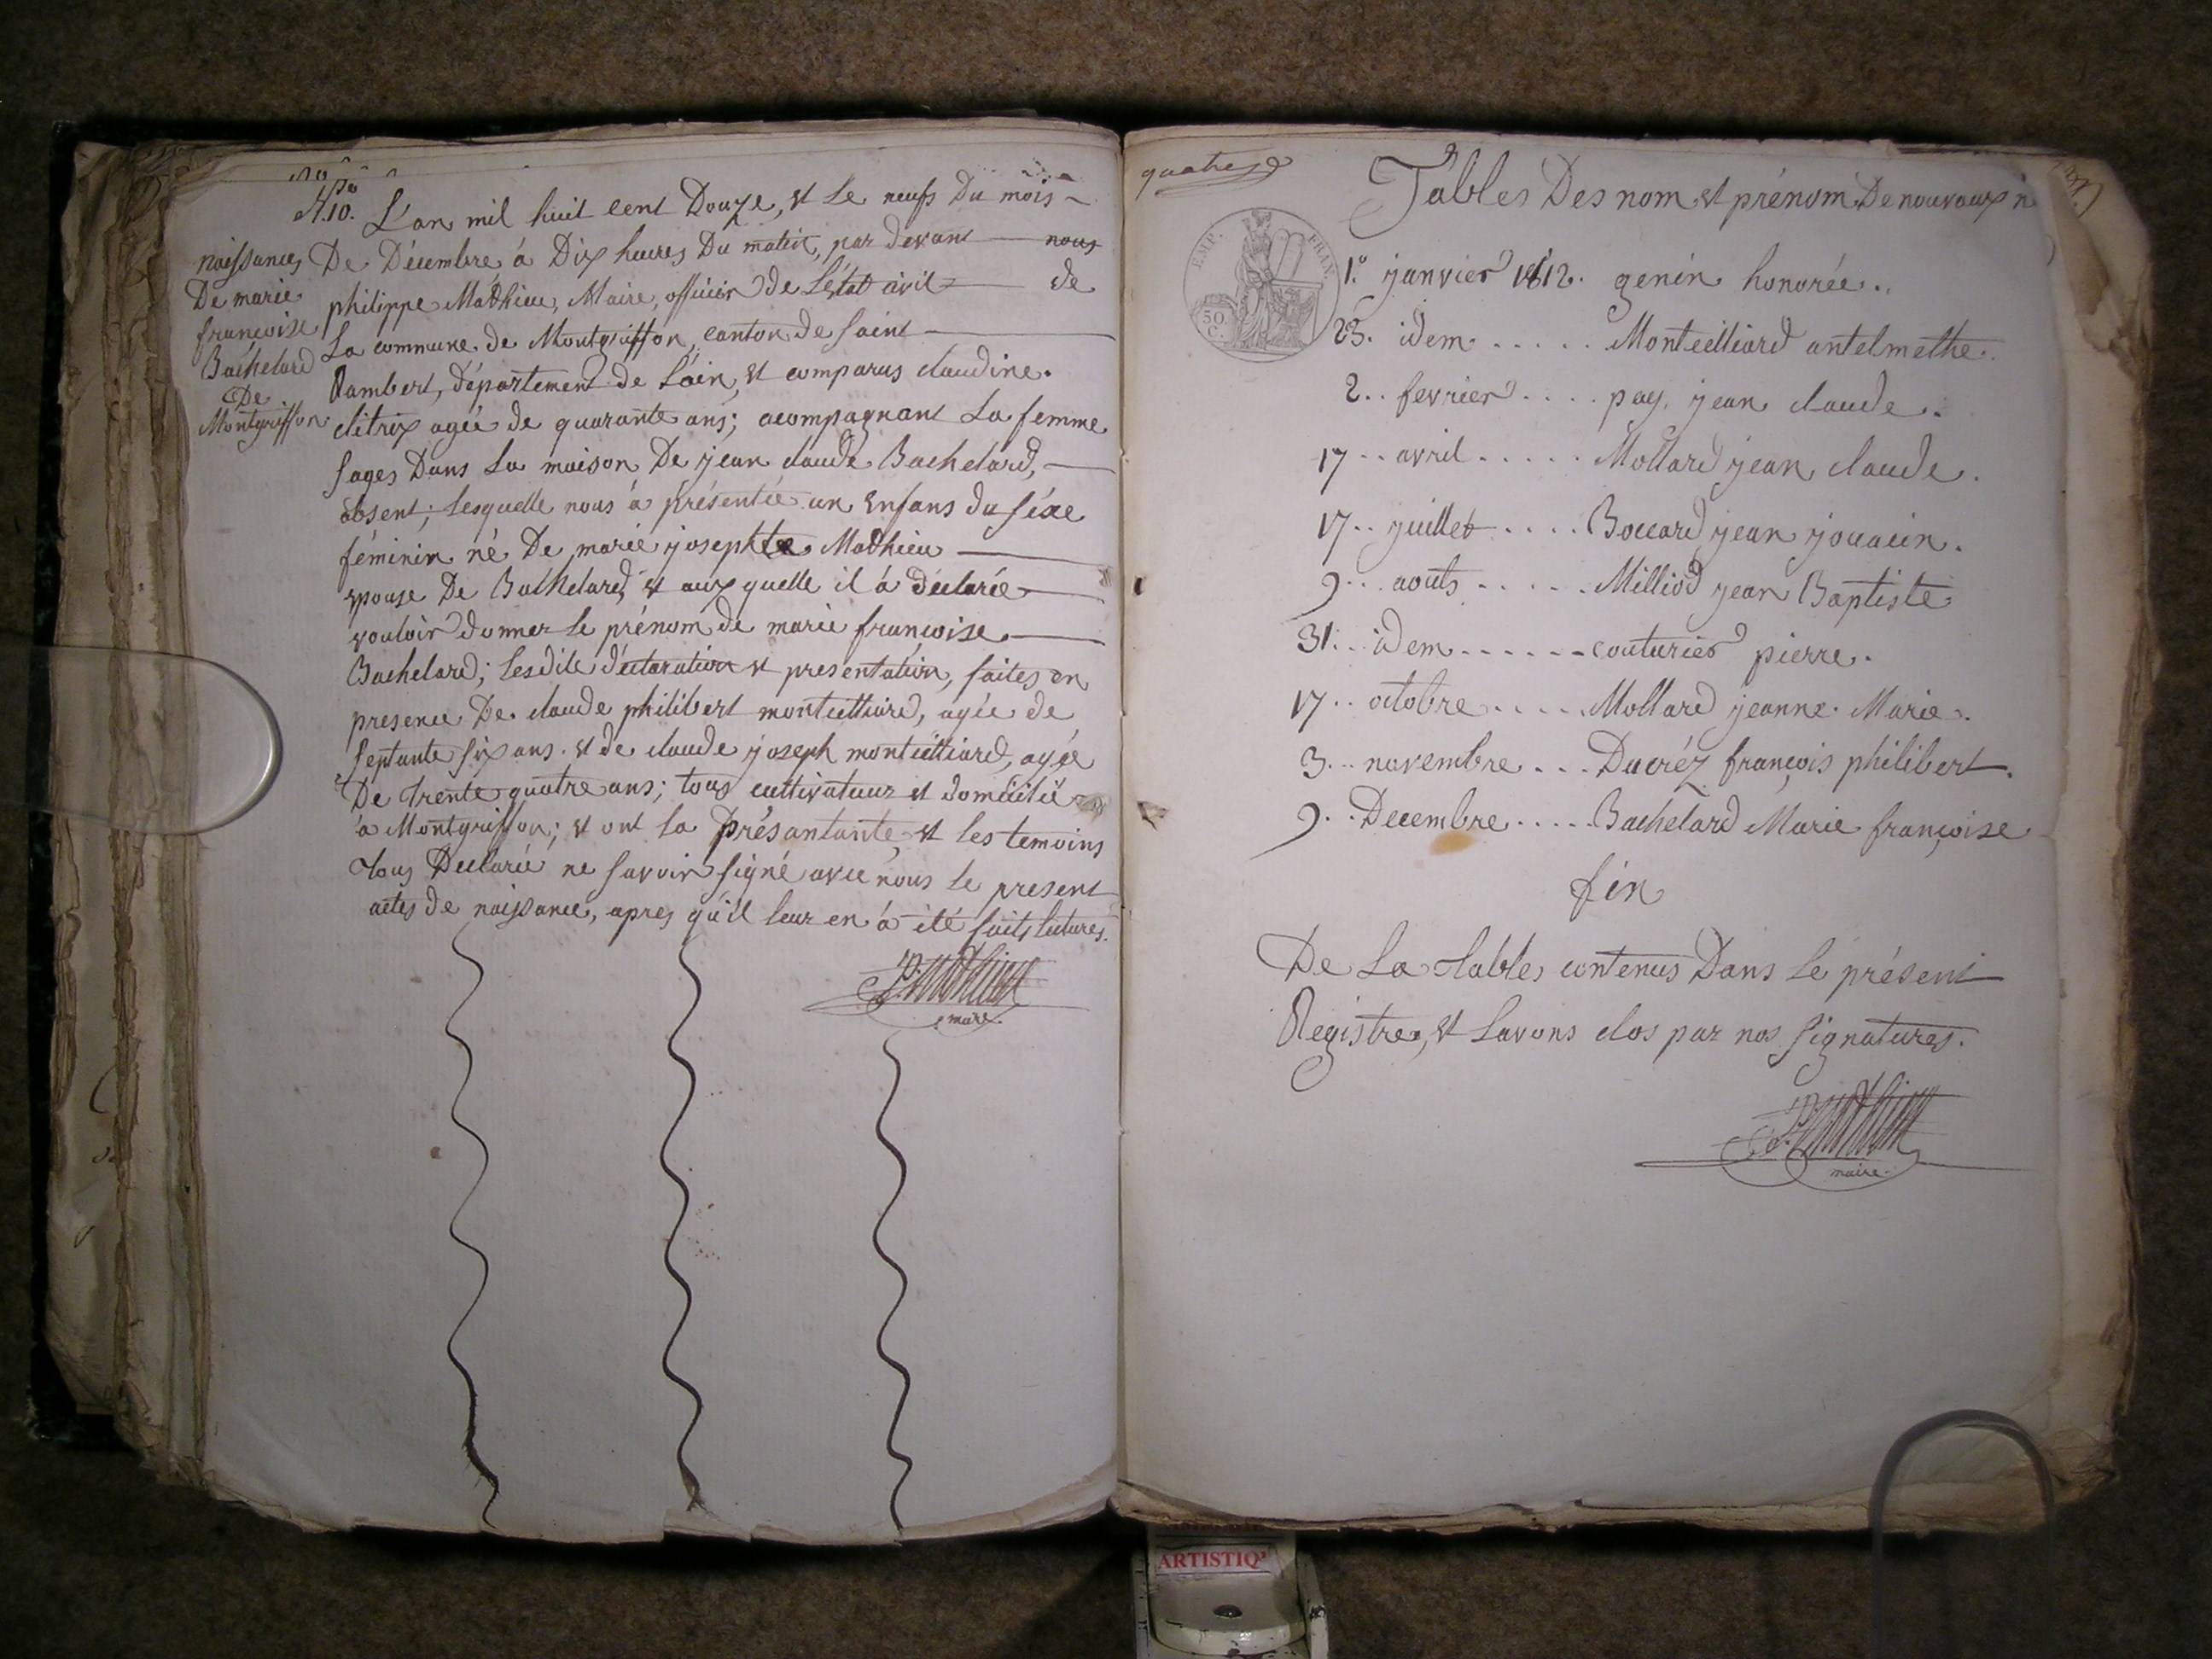 N.º 10.
L'an mil huit cent Douze, et le neufs Du mois
naissances
De Décembre à Dix heures Du matin, par devant nous
De marie
philippe Mathieu, Maire, officier de L'état civil de
françoise
La commune de Montgriffon, canton de saint
Bachelard
Rambert, département de L'ain, et comparus claudine
De
Montgriffon
agée de quarante ans; acompagnant La femme
sages Dans La maison De jean claude Bachelard,
absent; Lesquelle nous à présentée un Enfans du séxe
féminin né De marie josephte Mathieu
epouse De Bachelard, et aux quelle il à déclarée
vouloir donner le prénom de marie françoise
Bachelard; Lesdite déclaration et presentation, faites en
presence De claude philibert montcilliard, agée de
septante six ans. et de claude joseph montcilliard, agée
De trente quatre ans; tous cultivateur et domicilié
à Montgriffon; et ont La Présantante, et les temoins
tous Declarée ne savoir signé avec nous le present
actes de naissance, apres qu'il leur en à été faits lectures.
P. Mathieu
maire.
quatre
Tables Des nom et prénom De nouvaux n
EMP. FRAN.
50 C.
1.º janvier 1812. genin honorée.
23. idem ..... Montcilliard antelmethe.
2.. fevrier .... pay, jean claude.
17.. avril ..... Mollard jean claude.
17.. juillet .... Boccard jean jouacin.
9... aouts ..... Milliod jean Baptiste
31... idem ...... couturier pierre.
17.. octobre .... Mollard jeanne. Marie.
3... novembre ... Ducréz françois philibert.
9.. Decembre ..... Bachelard Marie françoise
fin
De La tables contenus Dans Le présent
Registre, et Lavons clos par nos signatures.
P. Mathieu
maire.
ARTISTIQ